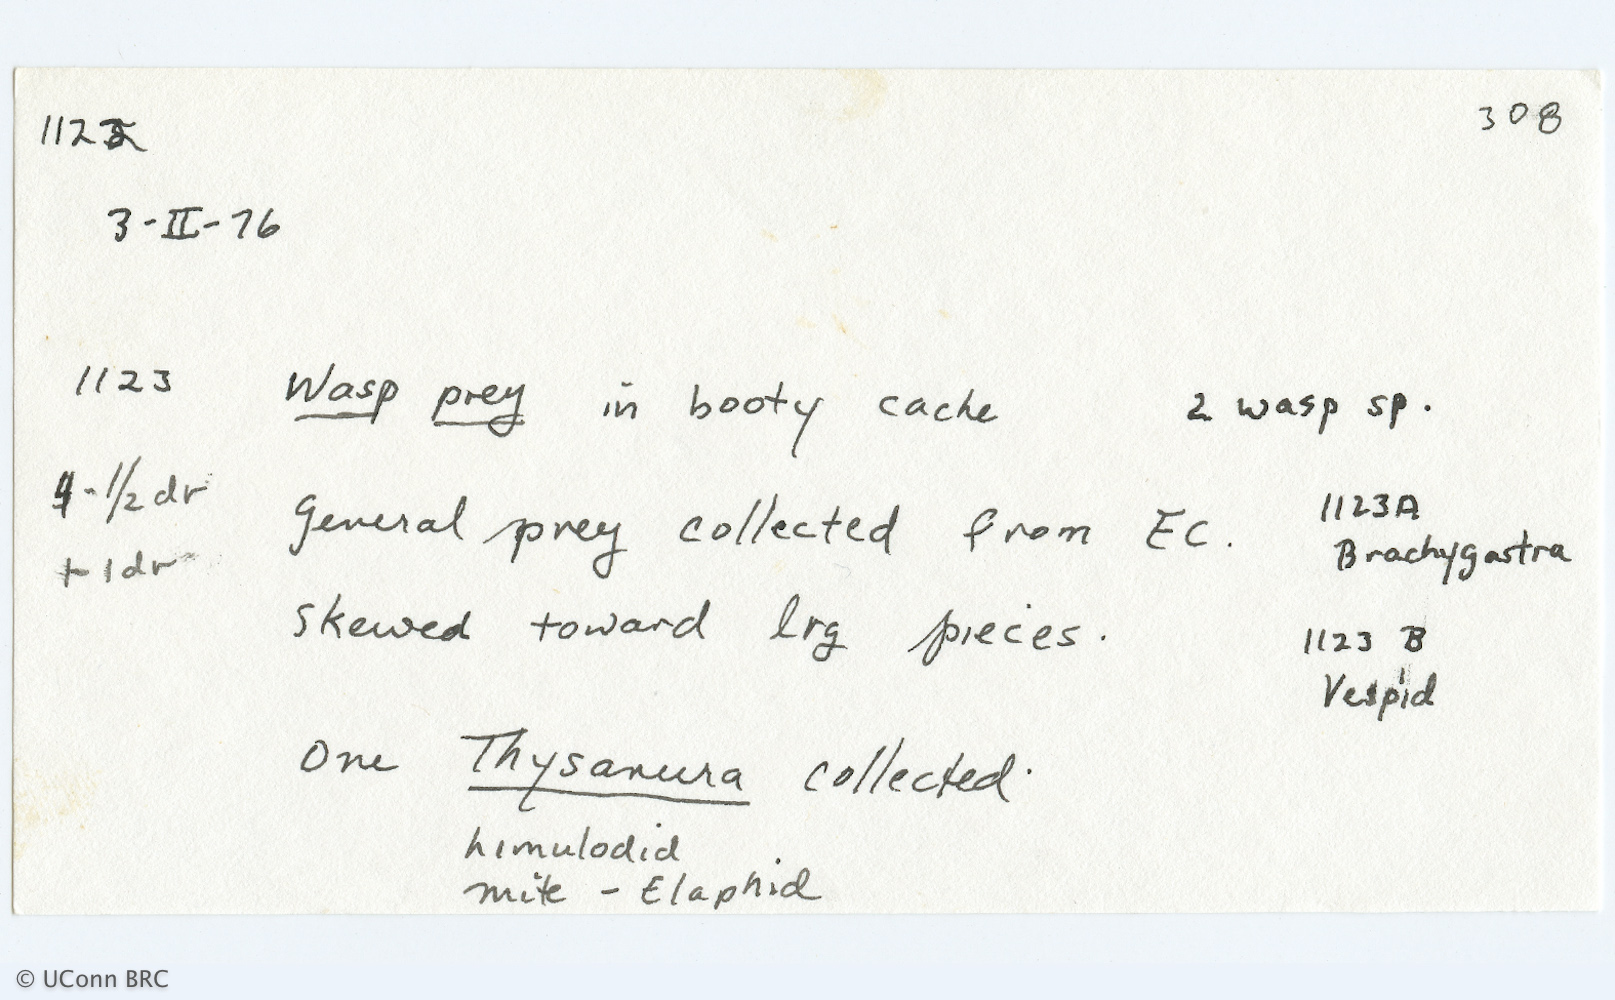 112
308
3-II-76
1123 Wasp prey in booty cache 2 wasp sp.
-1/2 dr General prey collected from EC. 1123A
Brachygastra
+ 1 dr skewed toward lrg pieces. 1123 B
Vespid
One Thysanura collected.
himulodid
mite - Elaphid